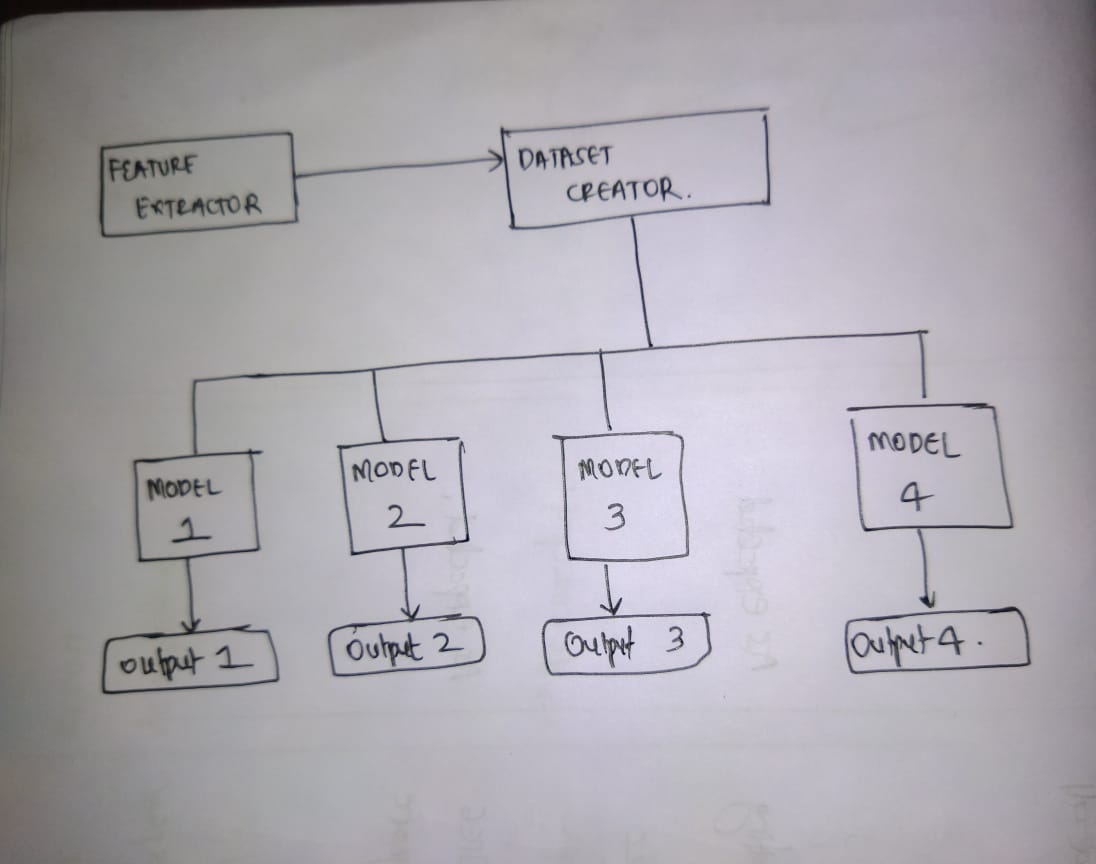 FEATURE
EXTRACTOR
DATASET
CREATOR.
MODEL
1
MODEL
2
MODEL
3
MODEL
4
output 1
Output 2
Output 3
Output 4.